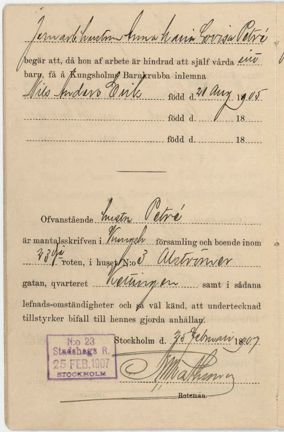 Jernarb.hustrun Anna Maria Lovisa Petré
begär att, då hon af arbete är hindrad att själf vårda sitt
barn, få å Kungsholms Barnkrubba inlemna
Nils Anders Erik född d. 21 Aug. 1905
född d. 18
född d. 18
Ofvanstående hustru Petré
är mantalsskrifven i Kungsh. församling och boende inom
23dje roten, i huset N:o 3 Alströmer
gatan, qvarteret samt i sådana
lefnads-omständigheter och så väl känd, att undertecknad
tillstyrker bifall till hennes gjorda anhållan.
Stockholm d. 25 Februari 1907.
N:o 23
Stadshags R.
25 FEB. 1907
STOCKHOLM
Roteman.